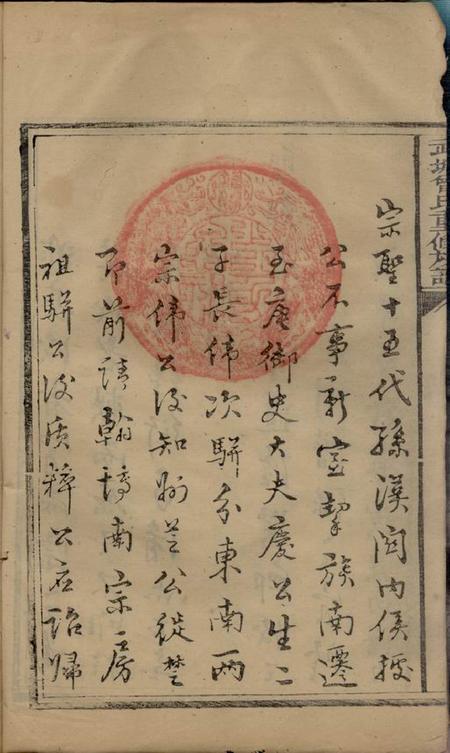 武城曾氏重修族譜
宗聖十五代孫漢關內侯據
公不事新室挈族南遷
至唐御史大夫慶公生二
子長偉次駢分東南兩
宗偉公後知州公徙楚
即前請翰博南宗房
祖駢公後質粹公應詔歸